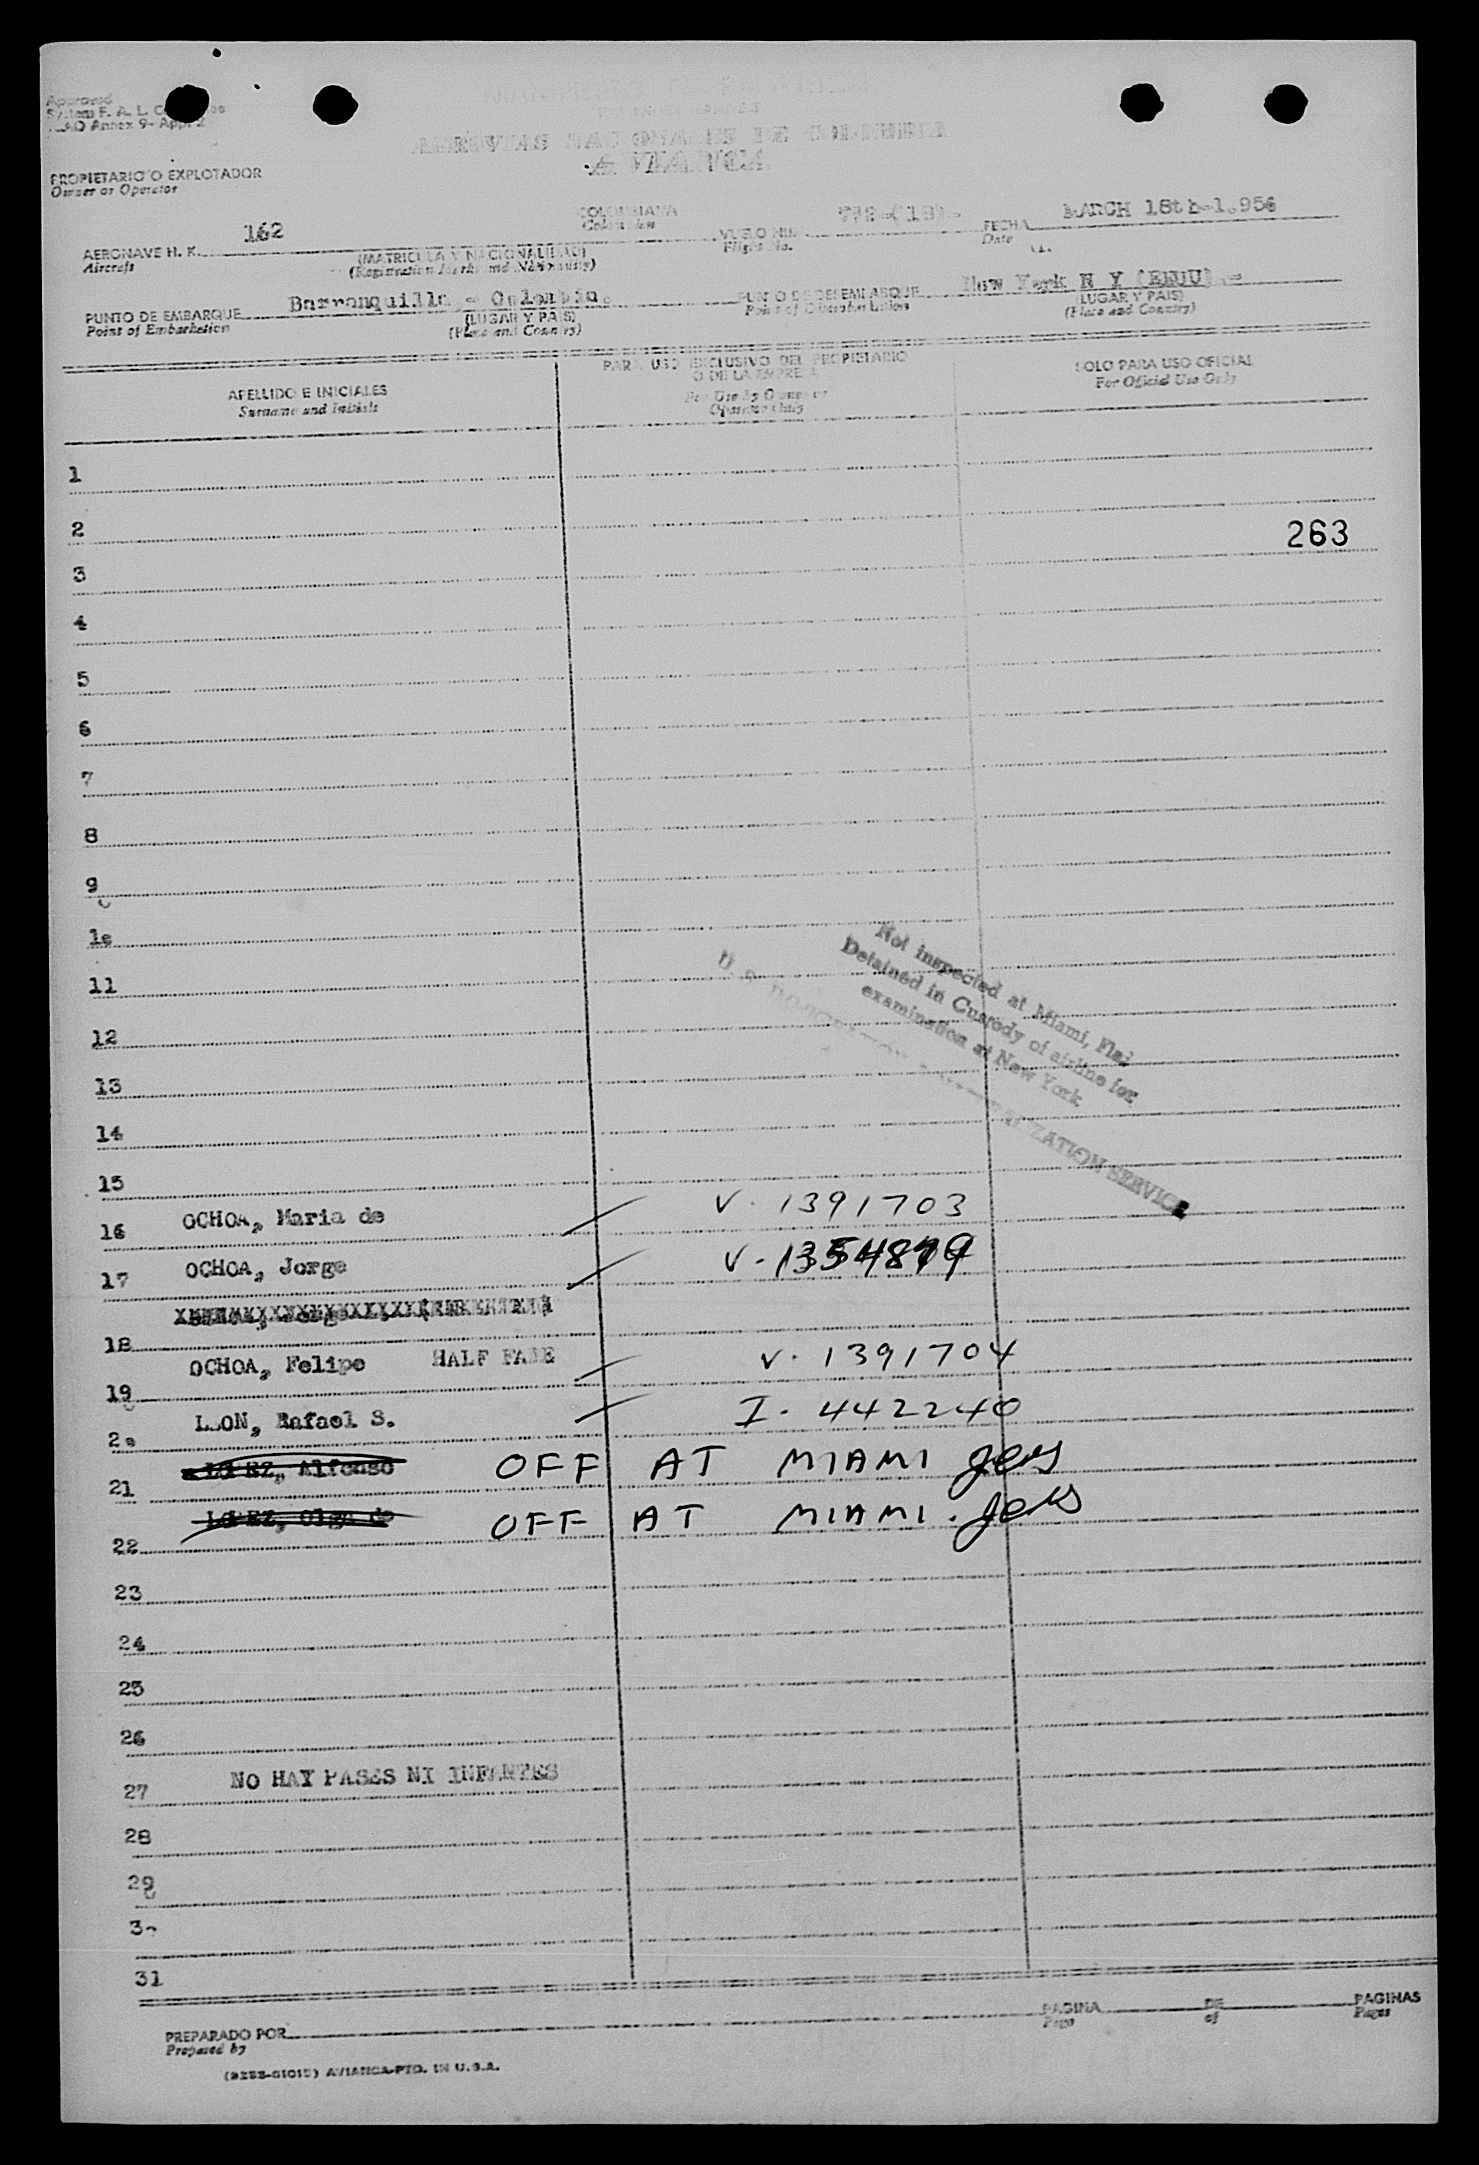 Approved
System F. A. L.
Annex 9- App. 2
AEROVIAS NACIONALES DE COLOMBIA
AVIANCA
PROPIETARIO O EXPLOTADOR
Owner or Operator
AERONAVE H. K. 162 COLOMBIANA VUELO NUM. FECHA MARCH 18th-1.956
Aircraft (MATRICULA Y NACIONALIDAD) Colombian Flight No. Date
(Registration Marks and Nationality)
PUNTO DE EMBARQUE Barranquilla - Colombia. PUNTO DE DESEMBARQUE New York N Y (EEUU).-
Point of Embarkation (LUGAR Y PAIS) Point of Disembarkation (LUGAR Y PAIS)
(Place and Country) (Place and Country)
APELLIDO E INICIALES PARA USO EXCLUSIVO DEL PROPIETARIO SOLO PARA USO OFICIAL
Surname and Initials O DE LA EMPRESA For Official Use Only
For Use by Owner or
Operator Only
1
2
263
3
4
5
6
7
8
9
1o
11
12
13
14
15
Not inspected at Miami, Fla;
Detained in Custody of airline for
examination at New York
ZATION SERVICE
16 OCHOA, Maria de V. 1391703
17 OCHOA, Jorge
18
19 OCHOA, Felipe HALF FARE V. 1391704
2o LEON, Rafael S. I- 442240
21 LOPEZ, Alfonso OFF AT MIAMI
22 LOPEZ, Olga de OFF AT MIAMI.
23
24
25
26
27 NO HAY PASES NI INFANTES
28
29
3o
31
PREPARADO POR PAGINA DE PAGINAS
Prepared by Page of Pages
AVIANCA-PTD. IN U.S.A.